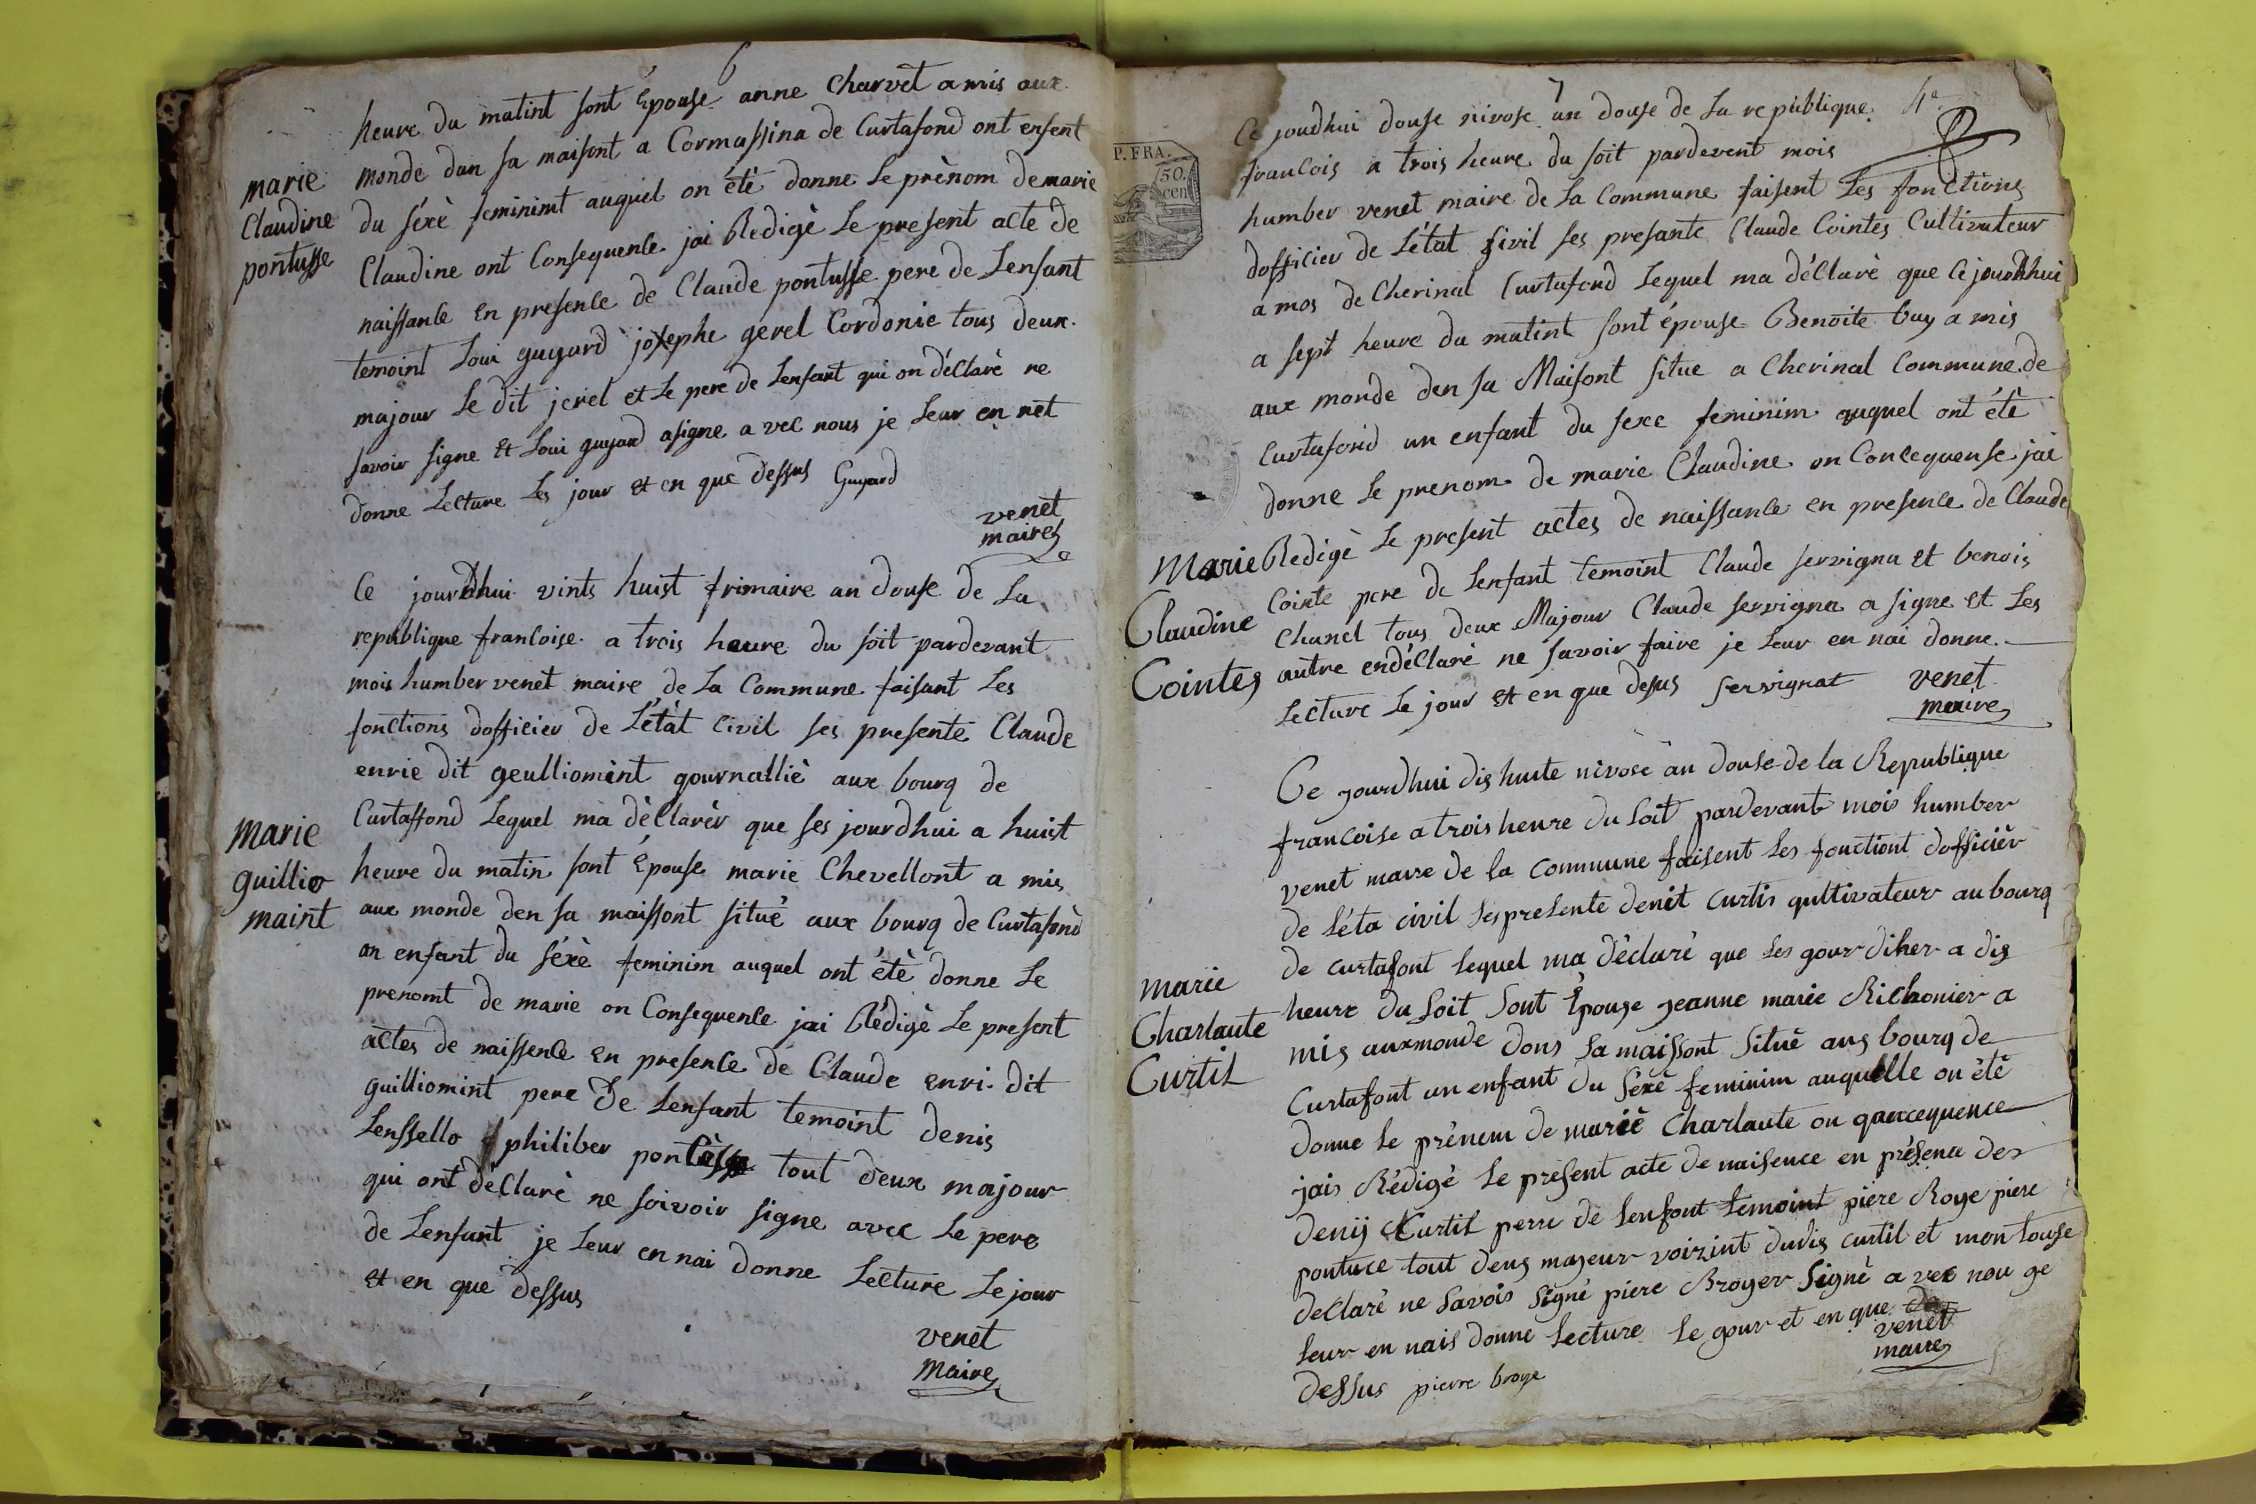 6
heure du matint sont Epouse anne Charvet a mis aux
monde dan sa maisont a Cormassina de Curtafond ont enfent
du séxè feminimt auquel on été donne le prènom de marie
Claudine ont Consequence jai Redigè le present acte de
naissance En presence de Claude pontusse pere de Lenfant
temoint Loui guyard josephe gerel Cordonie tous deux
majour le dit jerel et le pere de Lenfant qui on déClarè ne
savoir signe et Loui guyard asigne avec nous je leur en net
donne Lecture Les jour et en que dessus Guyard
venet
maire
marie
Claudine
pontusse
Ce jourdhui vints huist frimaire an douse de La
republique francoise a trois heure du soit pardevant
mois humber venet maire de La Commune faisant Les
fonctions dofficier de Létàt Civil ses presente Claude
enrie dit geulliomint gournalliè aux bourg de
Curtaffond Lequel ma dèClarèr que ses jourdhui a huist
heure du matin sont Épouse marie Chevellont a mis
aux monde den sa maissont situé aux bourg de Curtafond
on enfant du séxè feminim auquel ont étè donne Le
prenomt de marie on Consequence jai Rédigè Le present
actes de naissence En presence de Claude enri dit
guilliomint pere de Lenfant temoint denis
Lenssello philiber tout deux majour
qui ont déClarè ne soivoir signe avec Le pere
de Lenfant je Leur en nai donne Lecture Le jour
et en que dessus
venet
Maire
Marie
guillio
maint
7
4e
Ce jourdhui douse nivose an douse de La republique
francois a trois heure du soit pardevent mois
humber venet maire de La Commune faisent Les fonctions
dofficier de Létat sivil ses presante Claude Cointes Cultivateur
a mos de Cherinal Curtafond Lequel ma déClarè que Ce jourdhui
a sept heure du matint sont épouse Benoite buy a mis
aux monde den sa Maisont situe a Cherinal Commune de
Curtafond un enfant du sexe feminim auquel ont étè
donne le prenom de marie Claudine on Concequense jai
Redigè Le present actes de naissance en presence de Claude
Cointe pere de Lenfant temoint Claude servigna et benois
Chanel tous deux Majour Claude servigna a signe et Les
autre endéClarè ne savoir faire je Leur en nai donne
Lecture Le jour et en que desus servignat
venet
maire
P. FRA.
50.
cen
Marie
Claudine
Cointes
Ce jourdhui dis huite nivose àn douse de la Republique
francoise a trois heure du soit pardevant mois humber
venet maire de la commune faisent les fonctiont dofficièr
de Léta civil ses presente denit curtis qultivateur au bourg
de curtafont lequel ma dèclaré que les gour diher a dis
heure du soit sont Épouse jeanne marie Richonier a
mis auxmonde dons sa maissont situé aus bourg de
Curtafont un enfant du séxè feminim auquelle on étè
donne le prènom de mariè Charlaute on qoncequence
jais Rédigè le present acte de naisence en présence de
denij Curtil perre de lenfont temoint piere Roye piere
pontuce tout deus majeur voizint dudis curtil et mon touse
declaré ne savois signé piere Broyer signè a vec nou ge
leur en nais donne lecture le gour et en que
dessus pierre broye
venet
maire
marie
Charlaute
Curtil